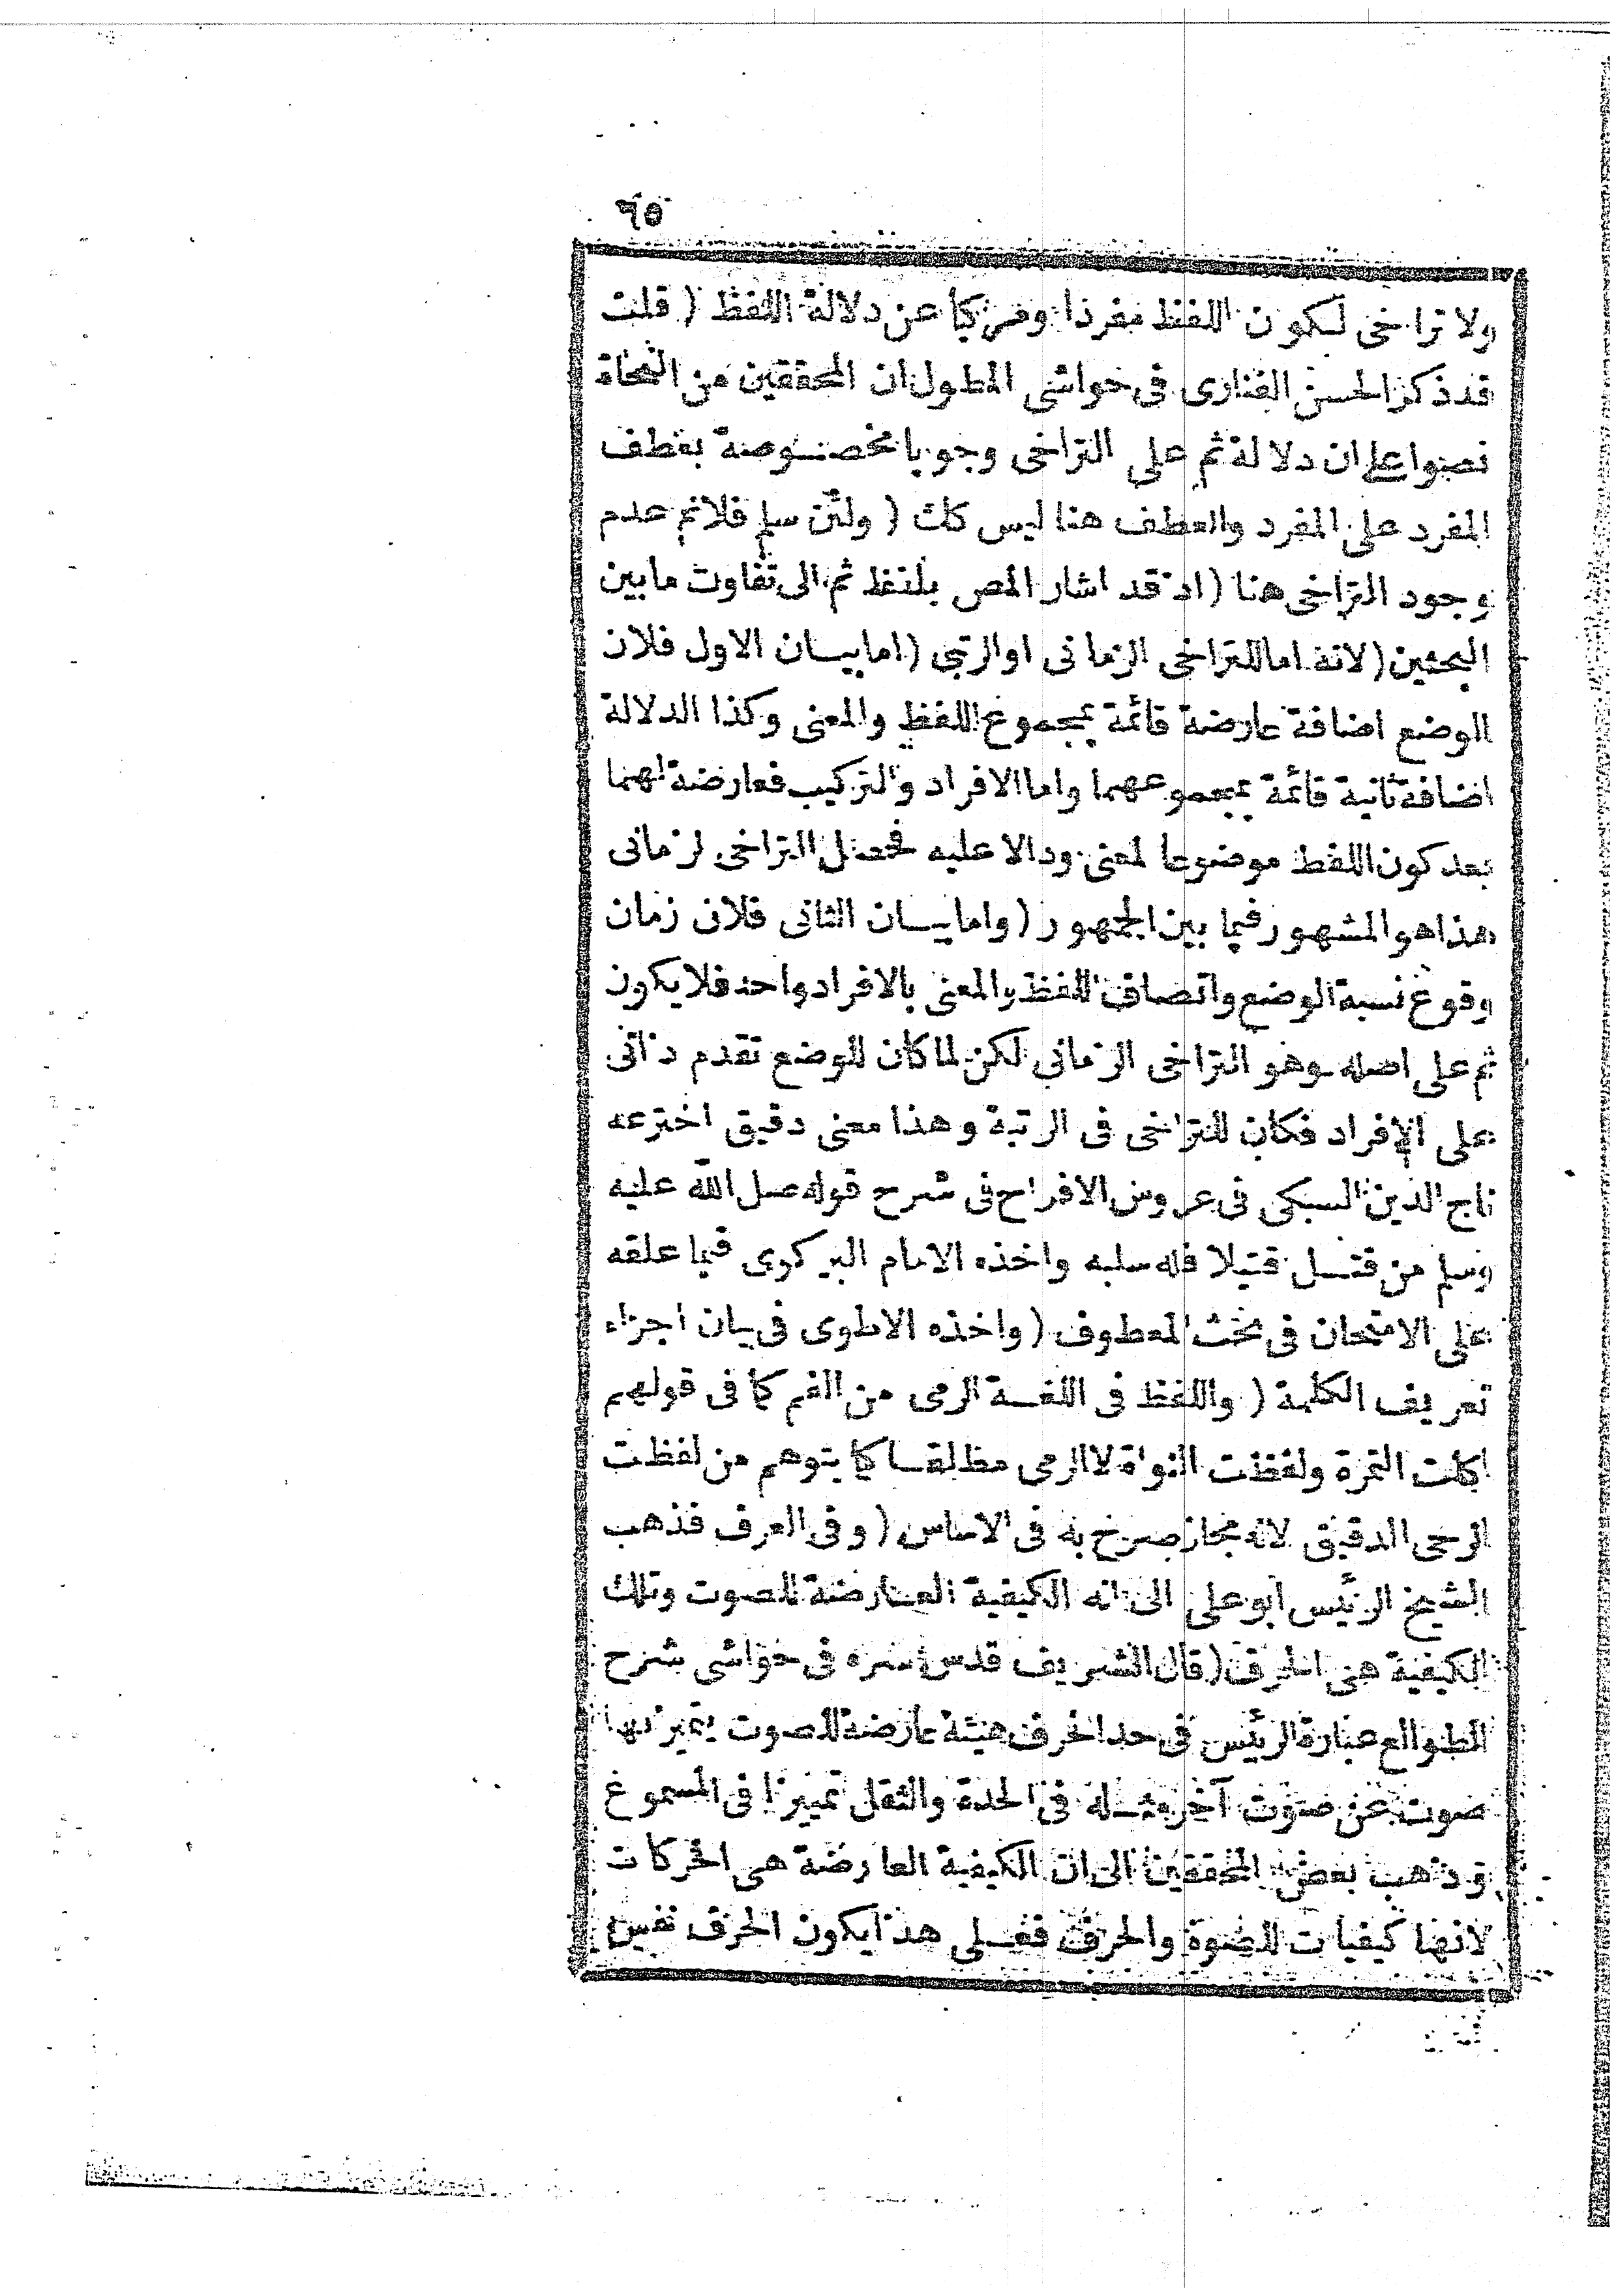 ٦٥
ولا تراخى لكون اللفظ مفردا ومركبا عن دلالة اللفظ ( قلت
قد ذكر الحسن الفنارى فى حواشى المطول ان المحققين من النحاة
نصوا على ان دلالة ثم على التراخى وجوبا مخصوصة بعطف
المفرد على المفرد والعطف هنا ليس كك ( ولئن سلم فلانم عدم
وجود التراخى هنا ( اذ قد اشار المص بلفظ ثم الى تفاوت مابين
البحثين ( لانه اما للتراخى الزمانى او الرتبى ( اما بيان الاول فلان
الوضع اضافة عارضة قائمة بمجموع اللفظ والمعنى وكذا الدلالة
اضافة ثانية قائمة بمجموعهما واما الافراد والتركيب فعارضة لهما
بعد كون اللفظ موضوعا لمعنى ودالا عليه فحصل التراخى لزمانى
هذا هو المشهور فيما بين الجمهور ( واما بيان الثانى فلان زمان
وقوع نسبة الوضع واتصاف اللفظ والمعنى بالافراد واحد فلا يكون
ثم على اصله وهو التراخى الزمانى لكن لما كان للوضع تقدم ذاتى
على الافراد فكان للتراخى فى الرتبة وهذا معنى دقيق اخترعه
تاج الدين السبكى فى عروس الافراح فى شرح قوله صلى الله عليه
وسلم من قتل قتيلا فله سلبه واخذه الامام البركوى فيما علقه
على الامتحان فى بحث المعطوف ( واخذه الاطوى فى بيان اجزاء
تعريف الكلمة ( واللفظ فى اللغة الرمى من الفم كما فى قولهم
اكلت التمرة ولفظت النواة لا الرمى مطلقا كما يتوهم من لفظت
الرحى الدقيق لانه مجاز صرح به فى الاساس ( وفى العرف فذهب
الشيخ الرئيس ابو على الى انه الكيفية العارضة للصوت وتلك
الكيفية هى الحرف ( قال الشريف قدس سره فى حواشى شرح
المطوالع عبارة الرئيس فى حد الحرف هيئة عارضة للصوت يتميز بها
صوت عن صوت آخر مثله فى الحدة والثقل تمييزا فى المسموع
وذهب بعض المحققين الى ان الكيفية العارضة هى الحركات
لانها كيفيات للصوة والحرف فعلى هذا يكون الحرف نفس